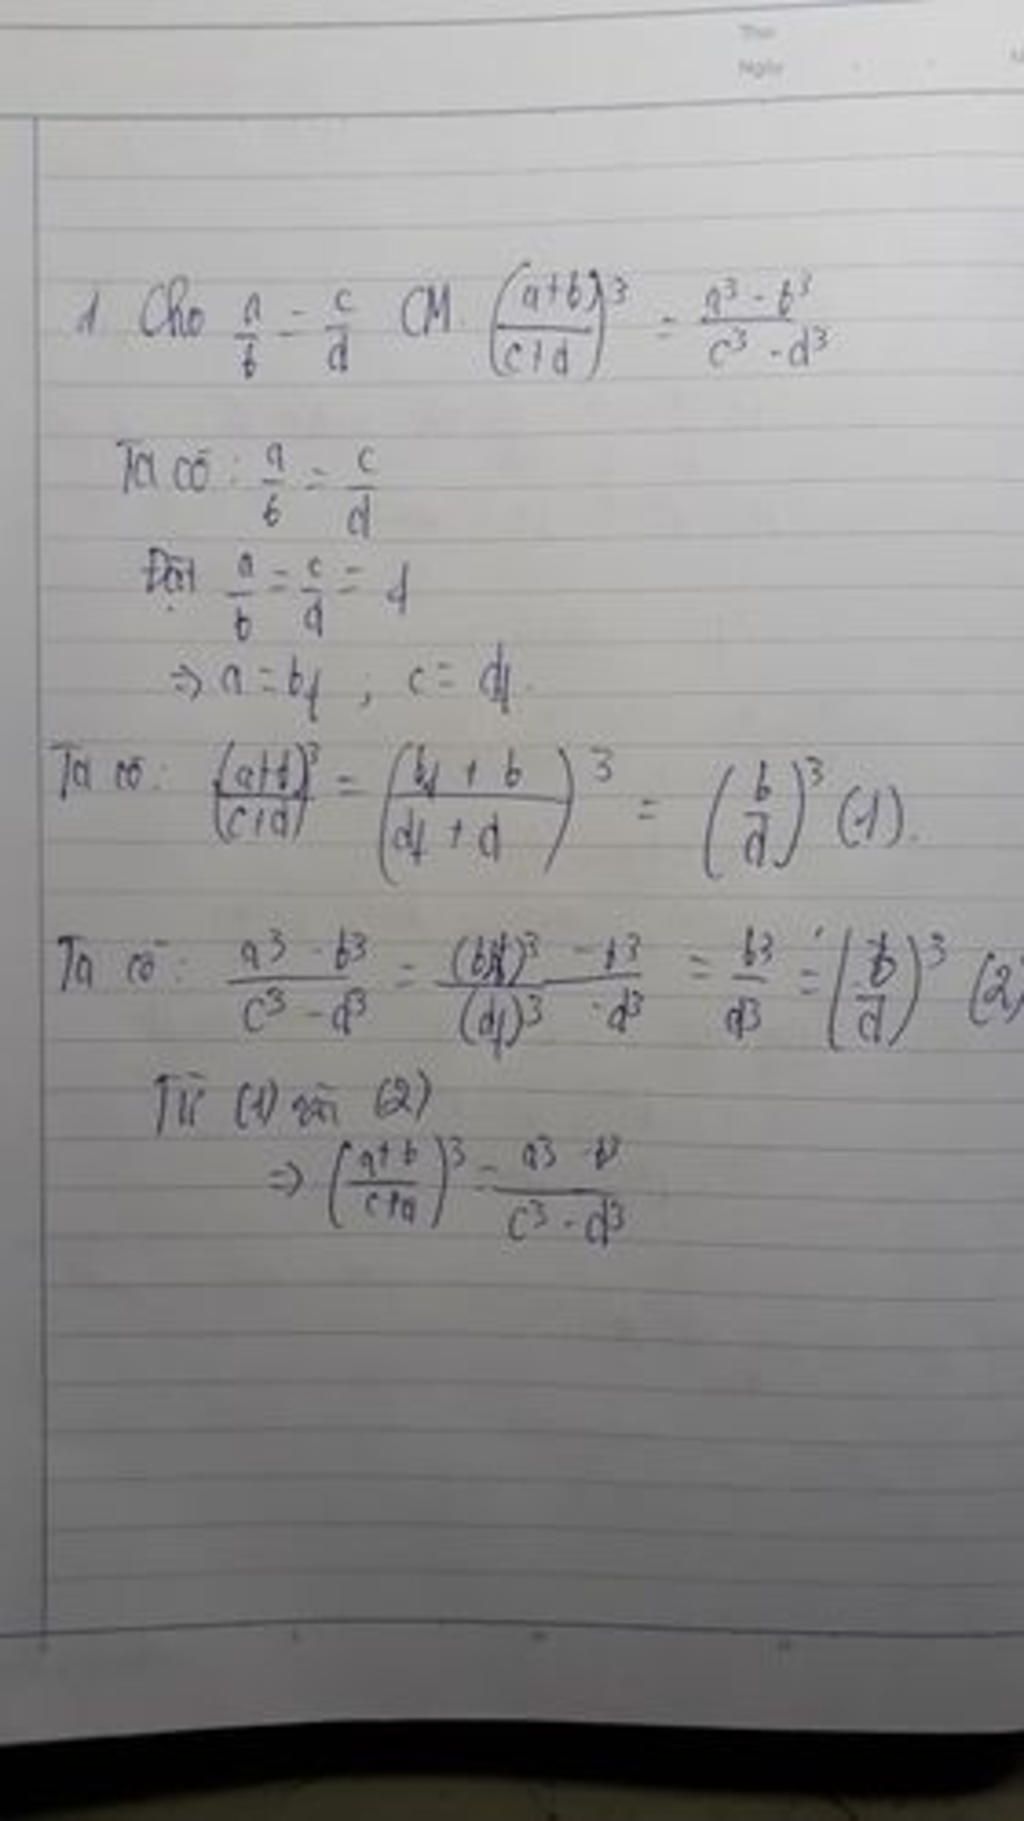 Thứ
Ngày
1. Cho a/b = c/d CM. ((a+b)/(c+d))³ = (a³ - b³)/(c³ - d³)
Ta có: a/b = c/d
Đặt a/b = c/d = f
⇒ a = bf ; c = df.
Ta có: ((a+b)/(c+d))³ = ((bf + b)/(df + d))³ = (b/d)³ (1).
Ta có: (a³ - b³)/(c³ - d³) = ((bf)³ - b³)/((df)³ - d³) = b³/d³ = (b/d)³ (2)
Từ (1) và (2)
⇒ ((a+b)/(c+d))³ = (a³ - b³)/(c³ - d³)